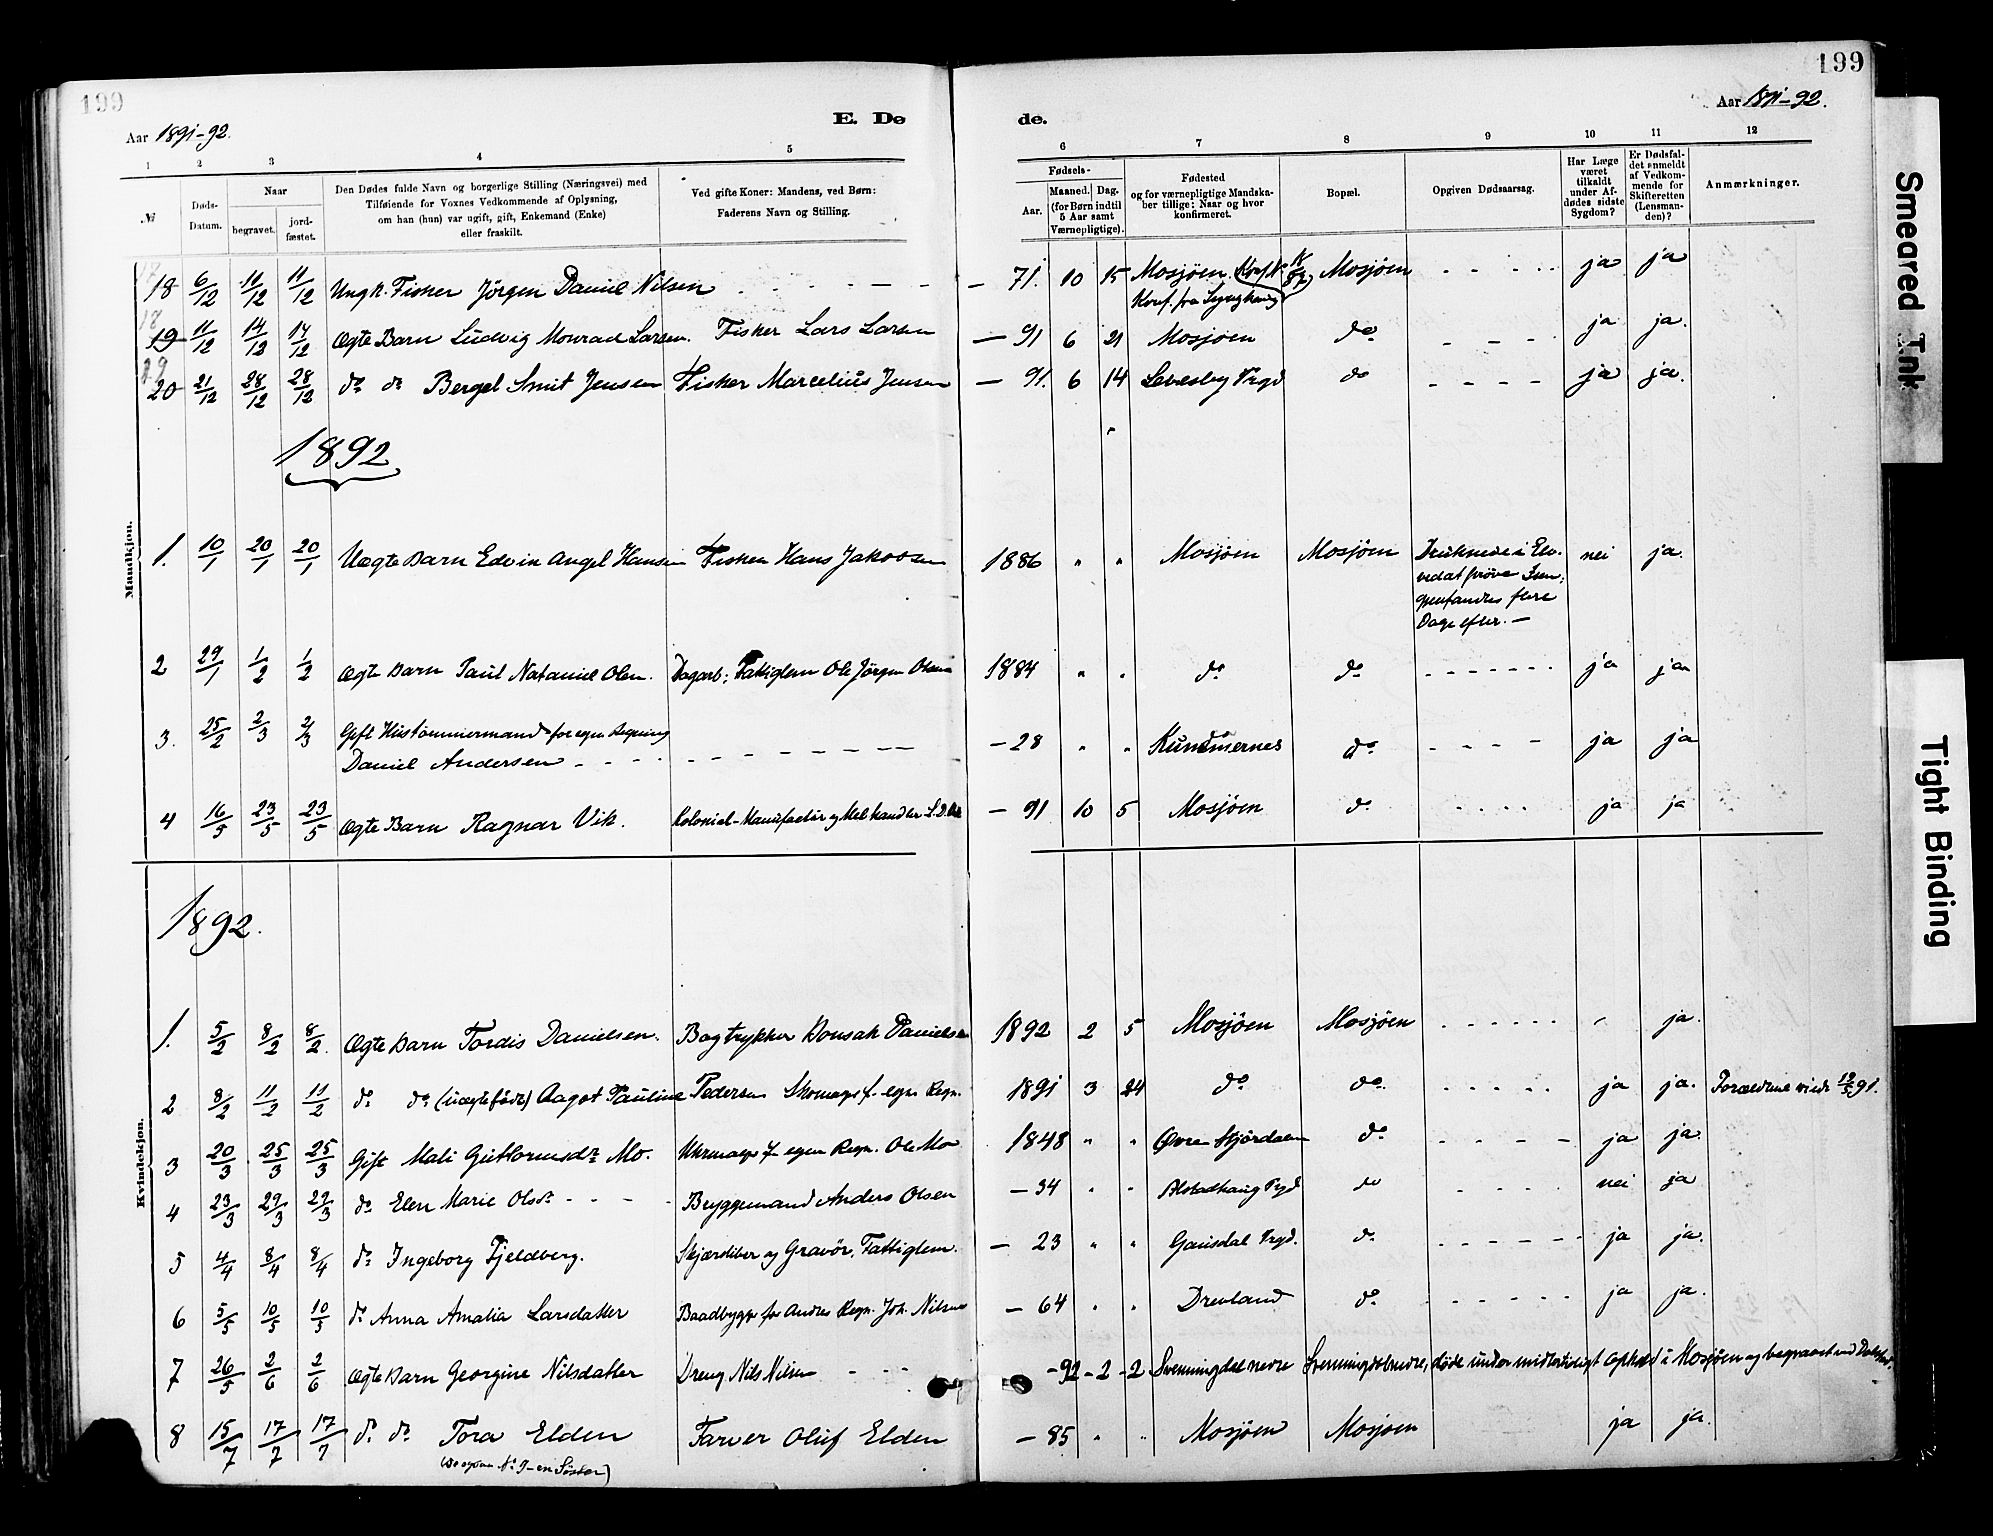 199
199
Aar 1891-92.
E. Dø
de.
Aar 1891-92.
1 2 3 4 5 6 7 8 9 10 11 12
№
Døds-Datum.
Naar
begravet.
jord-fæstet.
Den Dødes fulde Navn og borgerlige Stilling (Næringsvei) med
Tilføiende for Voxnes Vedkommende af Oplysning,
om han (hun) var ugift, gift, Enkemand (Enke)
eller fraskilt.
Ved gifte Koner: Mandens, ved Børn:
Faderens Navn og Stilling.
Fødsels-
Aar.
Maaned. Dag.
(for Børn indtil
5 Aar samt
Værnepligtige).
Fødested
og for værnepligtige Mandska-
ber tillige: Naar og hvor
konfirmeret.
Bopæl.
Opgiven Dødsaarsag.
Har Læge
været
tilkaldt
under Af-
dødes sidste
Sygdom?
Er Dødsfal-
det anmeldt
af Vedkom-
mende for
Skifteretten
(Lensman-
den)?
Anmærkninger.
Mandkjøn.
18 6/12 11/12 11/12 Ungk. Fisker Jörgen Daniel Nilsen - 71. 10 15 Mosjöen Mosjöen ja ja
Konf. fra
19 11/12 14/12 14/12 Ægte Barn Ludvig Monrad Larsen. Fisker Lars Larsen - 91 6 21 Mosjöen do ja ja.
20 21/12 28/12 28/12 do do Bergel Smit Jensen Fisker Marcelius Jensen - 91. 6 14 Lebesby Prgd do ja ja.
1892
1. 10/1 20/1 20/1 Uægte Barn Edvin Angel Hansen Fisker Hans Jakobsen 1886 " " Mosjöen Mosjöen Druknede i Elv. nei ja.
ved at pröve Isen;
gjenfandtes flere
Dage efter. -
2 29/1 1/2 1/2 Ægte Barn Paul Nataniel Olsen. Dagarb; Fattiglem Ole Jörgen Olsen 1884 " " do do ja ja
3. 25/2 2/3 2/3 Gift Hustömmermand for egen Regning
Daniel Andersen - 28 " " do ja ja
4 16/5 23/5 23/5 Ægte Barn Ragnar Vik. Kolonial-Manufactur og Melhandler - 91 10 5 Mosjöen do ja ja
1892.
Kvindekjøn.
1. 5/2 8/2 8/2 Ægte Barn Tordis Danielsen. Bogtrykker Danielsen 1892 2 5 Mosjöen Mosjöen ja.
2 8/2 11/2 11/2 do do (uægte född) Aagot Pauline Pedersen Skomager f. egen Regn. 1891 3 24 do do ja ja. Forældrene viede 12/5 91.
3 20/3 25/3 25/3 Gift Mali Guttormsdr Mo. Uhrmager f egen Regn. Ole Mo 1848 " " Øvre Stjördalen do ja ja.
4 23/3 29/3 29/3 do Elen Marie Olsdr Bryggemand Anders Olsen - 34 " " Alstadhaug Prgd do nei ja
5 4/4 8/4 8/4 do Ingeborg Fjeldberg. Skjærsliber og Gravör, Fattiglem. - 23 " " Gausdal Prgd. do ja ja.
6 5/5 10/5 10/5 do Anna Amalia Larsdatter Baadbygger for Andres Regn. Joh. Nilsen - 64 " " Drevland do ja ja.
7 26/5 2/6 2/6 Ægte Barn Georgine Nilsdatter Dreng Nils Nilsen - 92 - 2 - 2 Svenningdal nedre Svenningdal nedre, döde under midlertidigt Ophold i Mosjöen og begravet ved Dolstad.
8 15/7 17/7 17/7 do do Tora Elden Farver Oluf Elden - 85 " " Mosjöen Mosjöen ja ja.
(Se ogsaa No 9 - en Søster)
Smeared Ink
Tight Binding